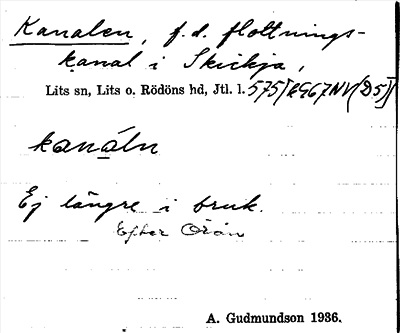 Kanalen, f.d. flottnings-
kanal i Skickja,
Lits sn, Lits o. Rödöns hd, Jtl. l.
kanáln
Ej längre i bruk.
Efter Örån
A. Gudmundson 1936.